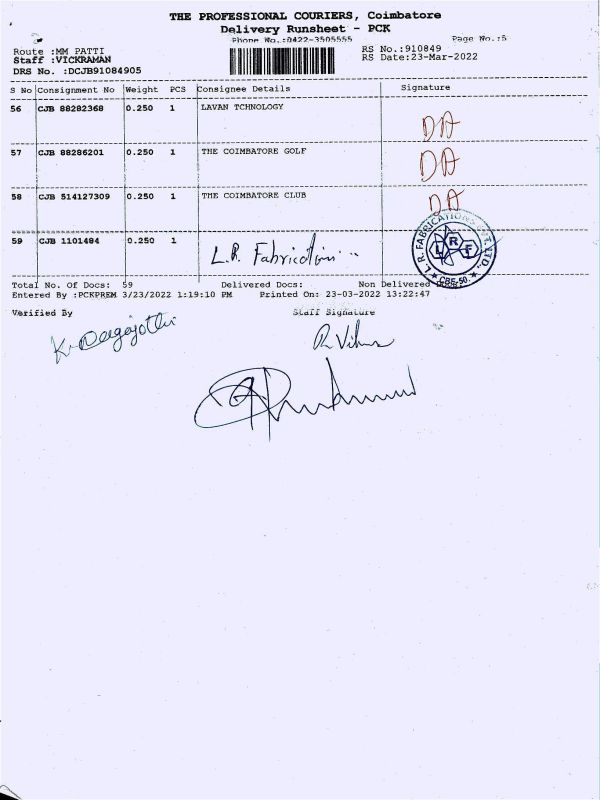 THE PROFESSIONAL COURIERS, Coimbatore
Delivery Runsheet - PCK
Phone No.:0422-3505555 Page No.:5
Route :MM PATTI RS No.:910849
Staff :VICKRAMAN RS Date:23-Mar-2022
DRS No. :DCJB91084905
S No Consignment No Weight PCS Consignee Details Signature
56 CJB 88282368 0.250 1 LAVAN TCHNOLOGY DA
57 CJB 88286201 0.250 1 THE COIMBATORE GOLF DA
58 CJB 514127309 0.250 1 THE COIMBATORE CLUB DA
59 CJB 1101484 0.250 1 L.R. Fabrication
L.R. FABRICATIONS PVT. LTD.
LRF
CBE-50.
Total No. Of Docs: 59 Delivered Docs: Non Delivered
Entered By :PCKPREM 3/23/2022 1:19:10 PM Printed On: 23-03-2022 13:22:47
Verified By Staff Signature